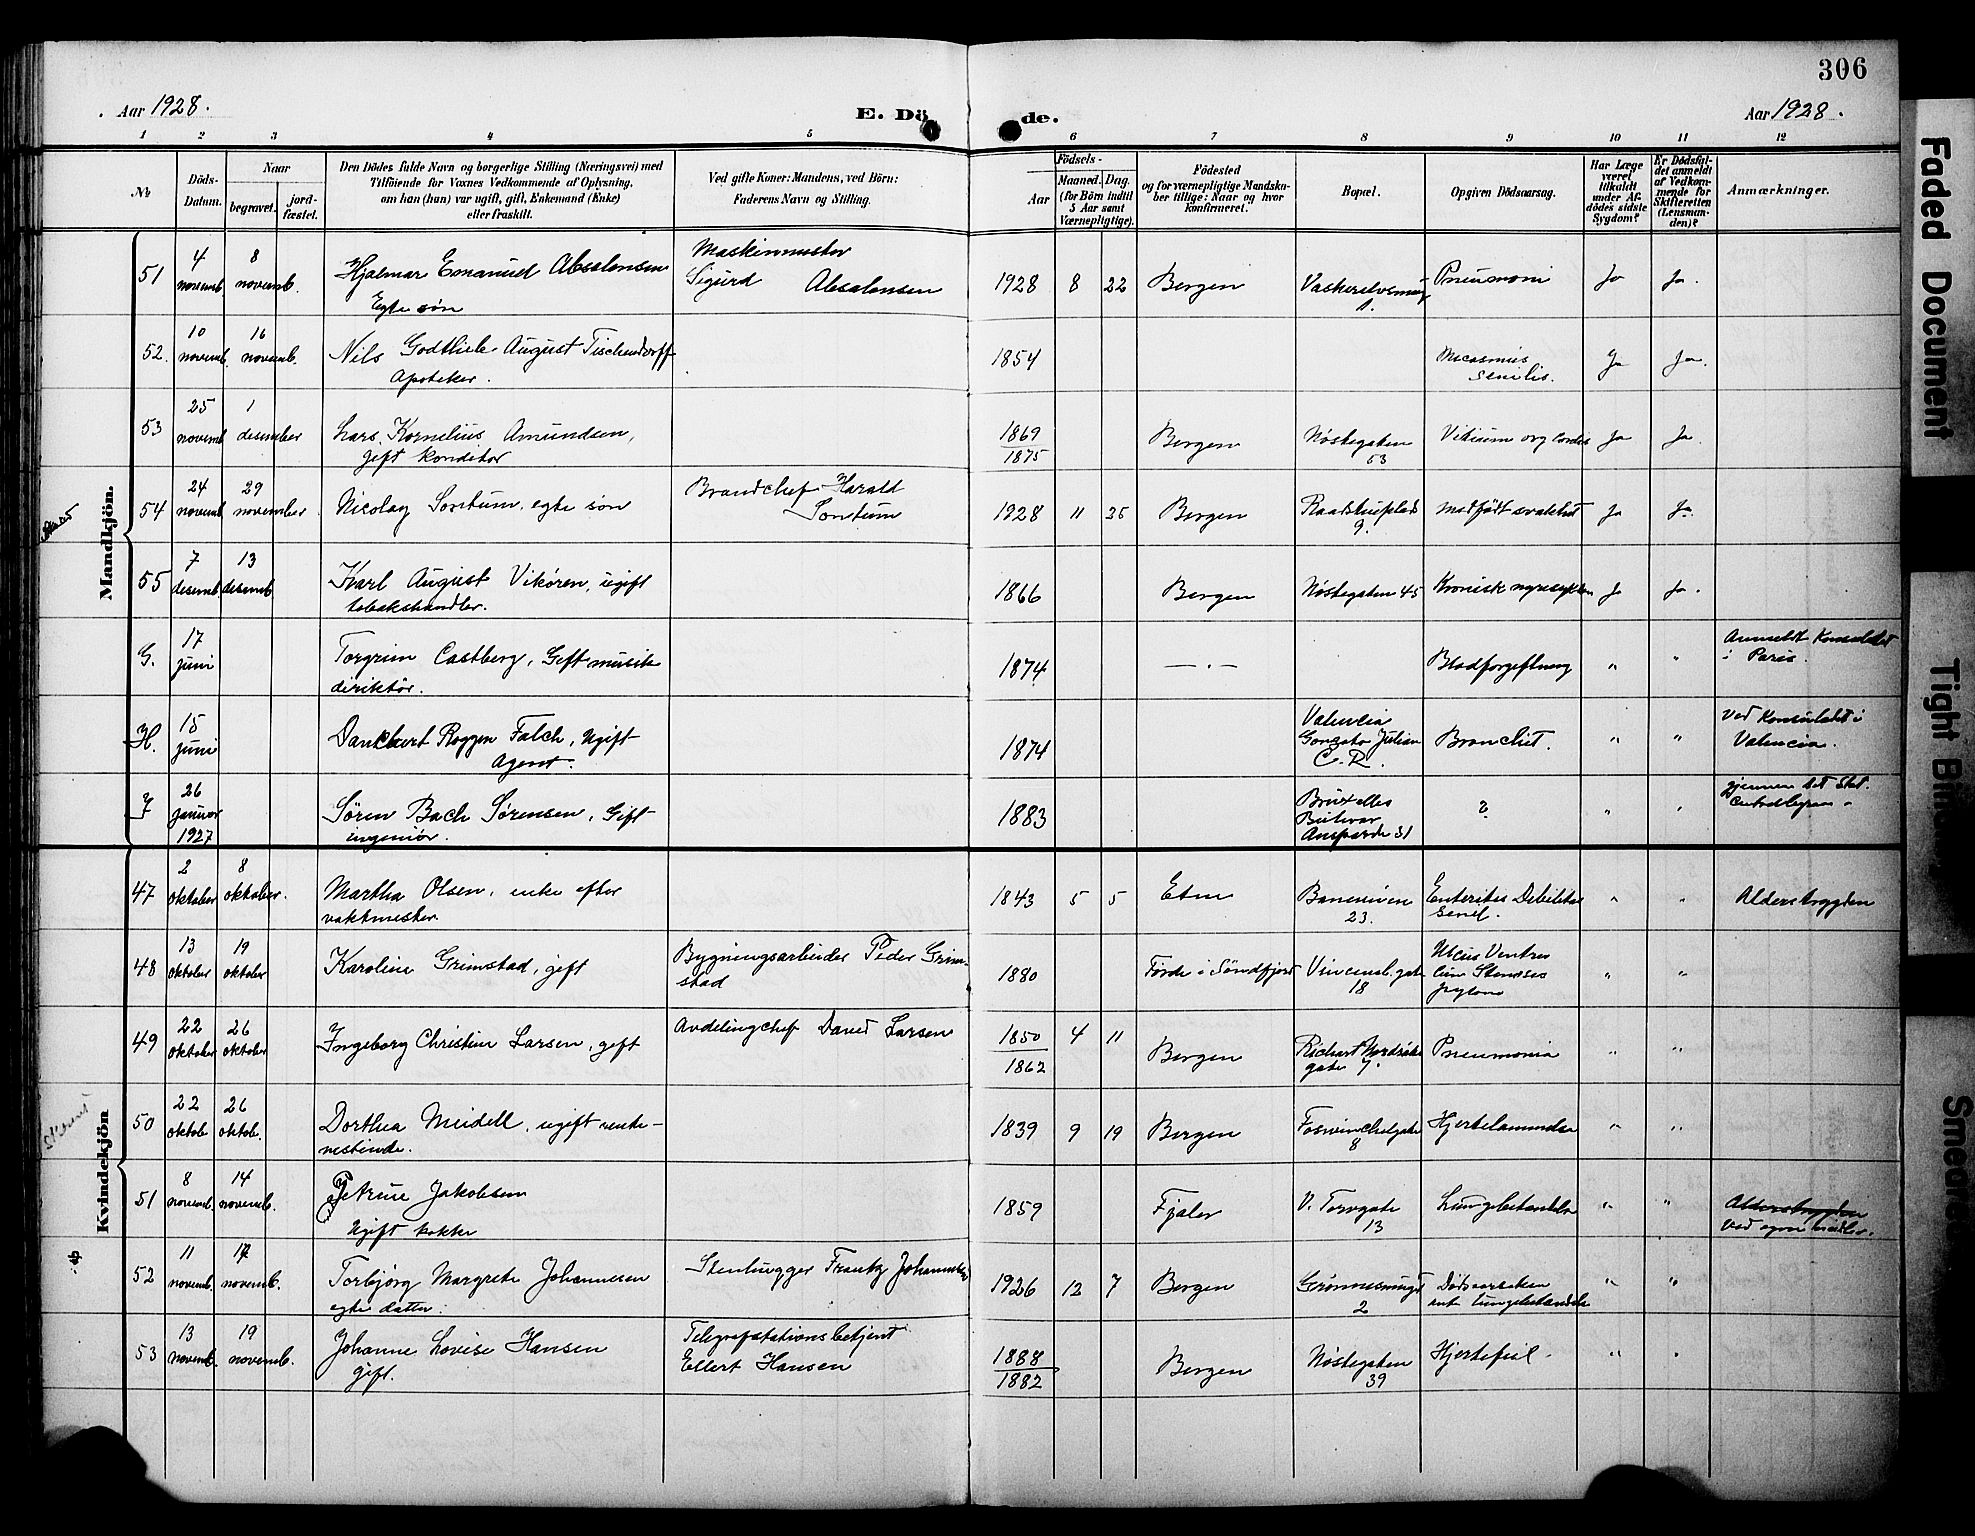 306
Aar 1928.
E. Dö de.
Aar 1928.
1 2 3 4 5 6 7 8 9 10 11 12
No
Döds-
Datum.
Naar
begravet.
jord-
fæstet.
Den Dödes fulde Navn og borgerlige Stilling (Næringsvei) med
Tilföiende for Voxnes Vedkommende af Oplysning,
om han (hun) var ugift, gift, Enkemand (Enke)
eller fraskilt.
Ved gifte Koner: Mandens, ved Börn:
Faderens Navn og Stilling.
Födsels-
Aar
Maaned. Dag.
(for Börn indtil
5 Aar samt
Værnepligtige).
Födested
og for værnepligtige Mandska-
ber tillige: Naar og hvor
konfirmeret.
Bopæl.
Opgiven Dödsaarsag.
Har Læge
været
tilkaldt
under Af-
dödes sidste
Sygdom?
Er Dödsfal-
det anmeldt
af Vedkom-
mende for
Skifteretten
(Lensman-
den)?
Anmærkninger.
Mandkjön.
51 4 novemb 8 novemb. Hjalmar Emanuel Absalonsen
Egte søn
Maskinmester
Sigurd Absalonsen
1928 8 22 Bergen Pneumoni Ja Ja.
52. 10 novemb. 16 novemb. Nils Godtlieb August Tischendorff
Apoteker.
1854 senilis. Ja Ja.
53 25 novemb 1 desember Lars Kornelius Amundsen,
gift konditor
1869
1875
Bergen Nøstegaten
53
Vitium org cordis Ja Ja.
54 24 novemb 29 november Nicolay Sontum, egte søn
Brandchef Harald
Sontum
1928 11 25 Bergen Raadhusplads
9.
medfødt svakhet Ja Ja.
55 7 desemb 13 desemb Karl August Vikøren, ugift
tobakshandler.
1866 Bergen Nøstegaten 45 Kronisk Ja Ja.
G. 17 juni Torgrim Castberg, Gift musik
direktør.
1874 — · — Blodforgiftning " "
Anmeldt Konsulatet
i Paris.
H. 15 juni Danckert Roggen Falch, Ugift
Agent.
1874
Valencia
Gonzato Julian
C. R.
Bronchit. " "
Ved Konsulatet i
Valencia.
26 januar 1927 Søren Bach Sørensen, Gift
ingeniør.
1883
Bruxelles
31
? " "
gjennem Det Stat.
Kvindekjön
47 2 oktober 8 oktober. Martha Olsen, enke efter
vaktmester.
1843 5 5 Etne
23.
Enteritis Debilitas
senil.
" " Alderstrygden
48 13 oktober 19 oktober Karoline Grimstad, gift
Bygningsarbeider Peder Grim-
stad
1880 Førde i Søndfjord Vincensl. gate
18
Ulcus Ventres
cum Stenoses
" "
49 22 oktober 26 oktober Ingeborg Christine Larsen, gift
Avdelingchef David Larsen
1850
1862
4 11 Bergen
Richart Nordraks
gate 7.
Pneumonia " "
50 22 oktob 26 oktob. Dorthea Meidell, ugift rente-
nistinde.
1839 9 19 Bergen
8
Hjertelammelse " "
51 8 novemb. 14 novemb. Petrine Jakobsen
Ugift kokke
1859 Fjaler V. Torvgate
13
Lungebetændelse " "
Alderstrygden
Ved egne midler.
52 11 novemb. 17 novemb. Torbjørg Margrete Johannesen
egte datter.
Stenhugger Frantz Johannesen
1926 12 7 Bergen
2
Dødsaarsaken
" "
53 13 novemb. 19 novemb. Johanne Lovise Hansen
gift.
Telegrafstationsbetjent
Ellert Hansen
1888
1882
Bergen Nøstegaten
39
Hjertefeil. " "
Faded Document
Tight Bin
Smeared